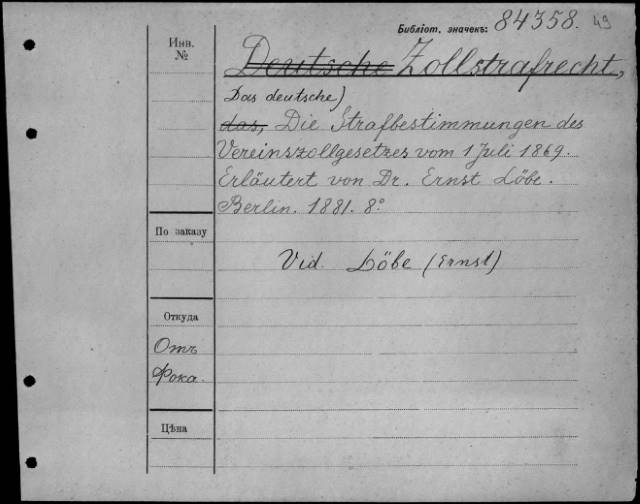 Библіот. значекъ: 84358. 49
Инв.
№
Deutsche Zollstrafrecht,
Das deutsche)
das, Die Strafbestimmungen des
Vereinszollgesetzes vom 1 Juli 1869.
Erläutert von Dr. Ernst Löbe.
Berlin. 1881. 8°
По заказу
Vid. Löbe (Ernst)
Откуда
Отъ
Фока.
Цѣна